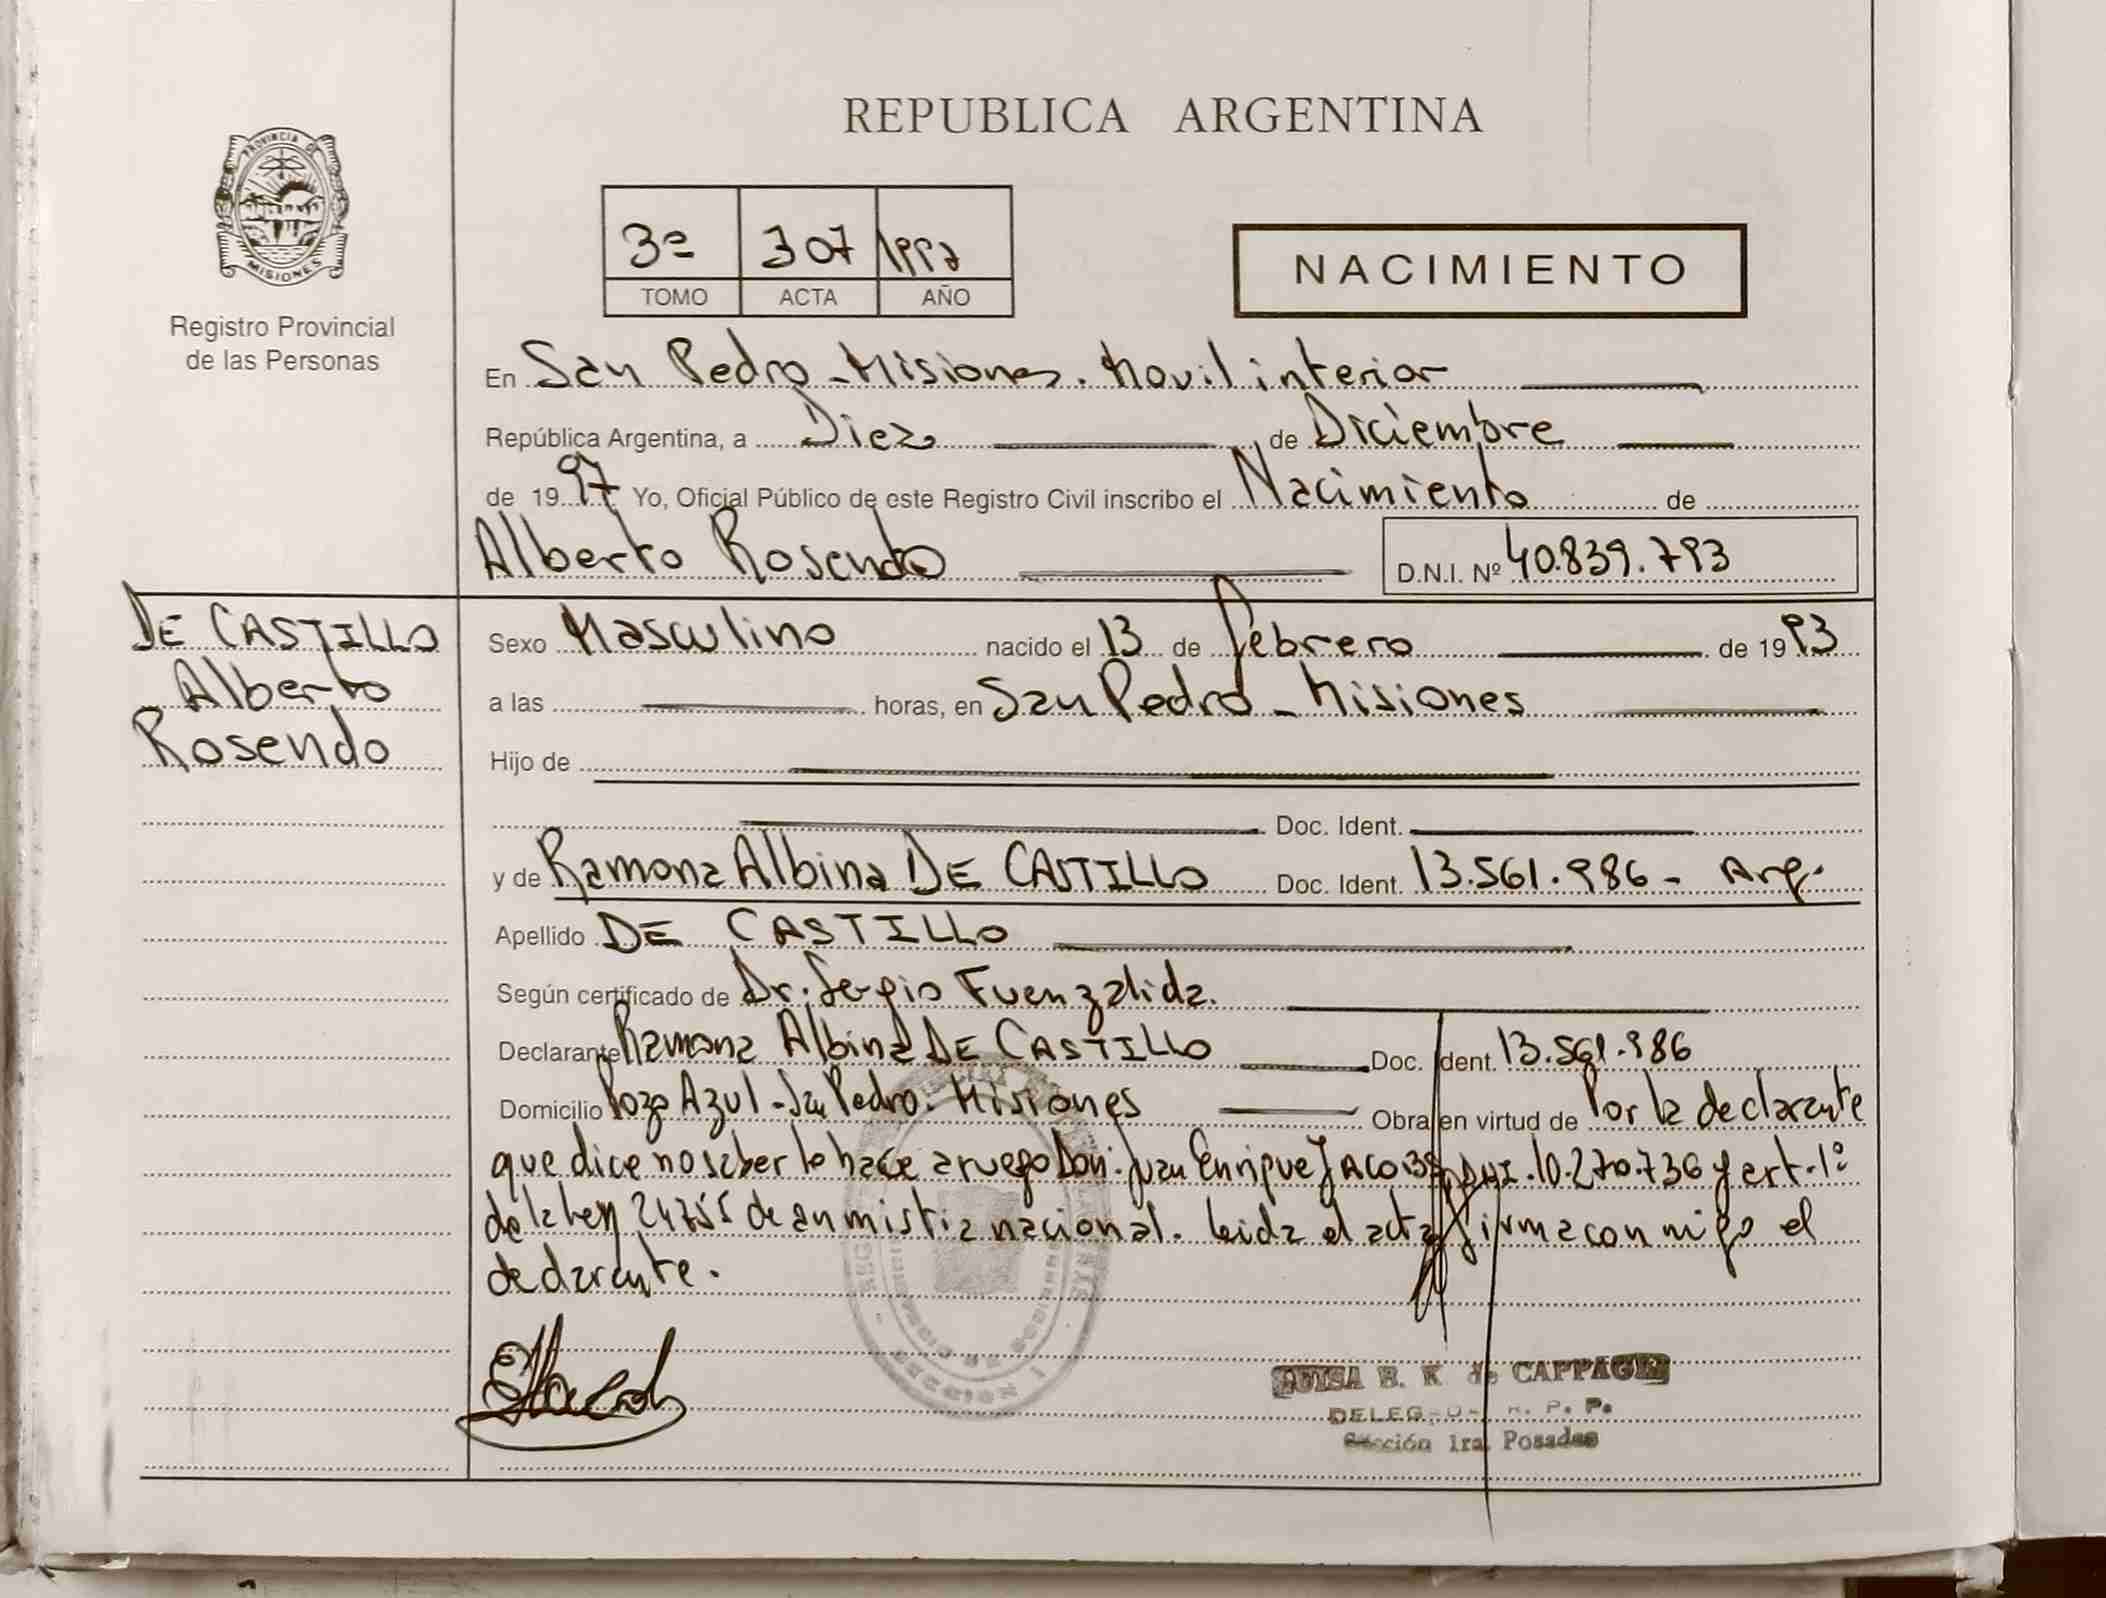 REPUBLICA ARGENTINA
PROVINCIA DE
MISIONES
Registro Provincial
de las Personas
3º 307 1997
TOMO ACTA AÑO
NACIMIENTO
En San Pedro - Misiones. Movil interior
República Argentina, a Diez de Diciembre
de 1997 Yo, Oficial Público de este Registro Civil inscribo el Nacimiento de
Alberto Rosendo D.N.I. Nº 40.839.793
DE CASTILLO
Alberto
Rosendo
Sexo Masculino nacido el 13 de febrero de 1993
a las horas, en San Pedro - Misiones
Hijo de
Doc. Ident.
y de Ramona Albina DE CASTILLO Doc. Ident. 13.561.986 - Arg.
Apellido DE CASTILLO
Según certificado de Dr. Sergio Fuenzalida.
Declarante Ramona Albina DE CASTILLO Doc. Ident. 13.561.986
Domicilio Pozo Azul - San Pedro. Misiones Obra en virtud de Por la declarante
que dice no saber lo hace a ruego Don: Juan Enrique DNI. 10.270.736 y art. 1º
de la ley 24755 de anmistia nacional. Leida el acta firma conmigo el
declarante.
LUISA B. K de CAPPAGLI
R. P. P.
Sección 1ra. Posadas